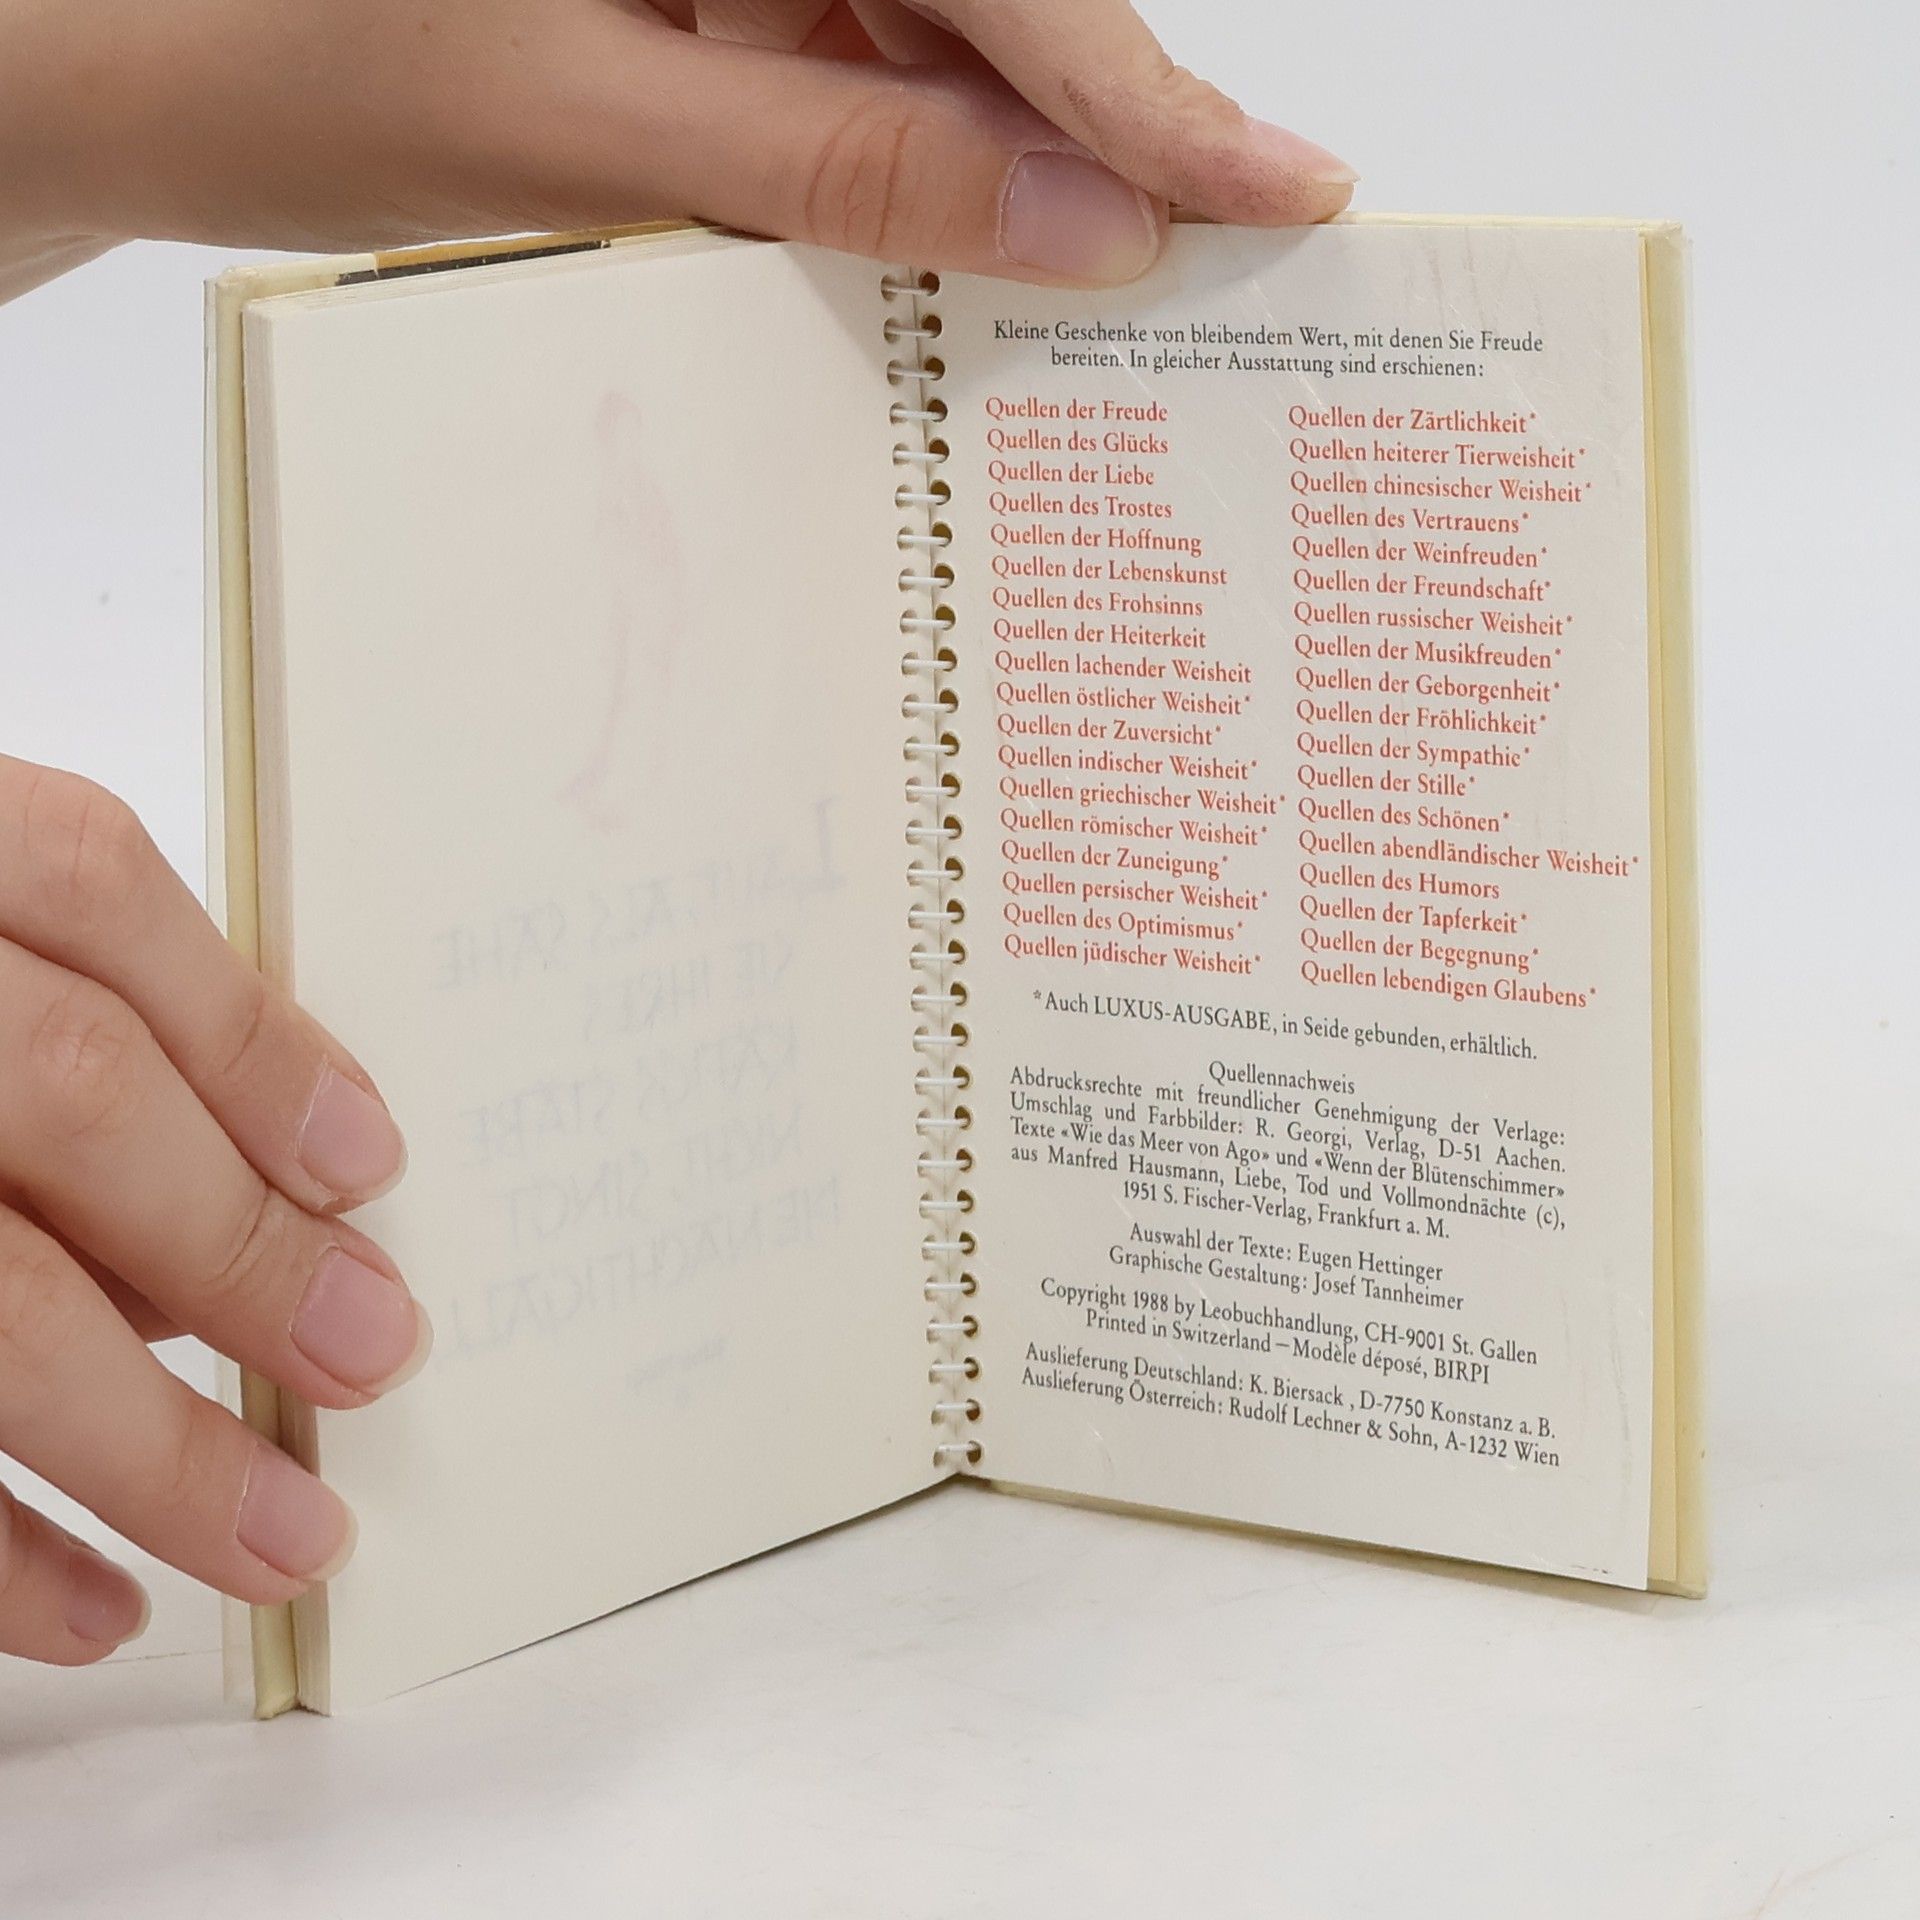 Kleine Geschenke von bleibendem Wert, mit denen Sie Freude
bereiten. In gleicher Ausstattung sind erschienen:
Quellen der Freude
Quellen des Glücks
Quellen der Liebe
Quellen des Trostes
Quellen der Hoffnung
Quellen der Lebenskunst
Quellen des Frohsinns
Quellen der Heiterkeit
Quellen lachender Weisheit
Quellen östlicher Weisheit*
Quellen der Zuversicht*
Quellen indischer Weisheit*
Quellen griechischer Weisheit*
Quellen römischer Weisheit*
Quellen der Zuneigung*
Quellen persischer Weisheit*
Quellen des Optimismus*
Quellen jüdischer Weisheit*
Quellen der Zärtlichkeit*
Quellen heiterer Tierweisheit*
Quellen chinesischer Weisheit*
Quellen des Vertrauens*
Quellen der Weinfreuden*
Quellen der Freundschaft*
Quellen russischer Weisheit*
Quellen der Musikfreuden*
Quellen der Geborgenheit*
Quellen der Fröhlichkeit*
Quellen der Sympathie*
Quellen der Stille*
Quellen des Schönen*
Quellen abendländischer Weisheit*
Quellen des Humors
Quellen der Tapferkeit*
Quellen der Begegnung*
Quellen lebendigen Glaubens*
*Auch LUXUS-AUSGABE, in Seide gebunden, erhältlich.
Quellennachweis
Abdrucksrechte mit freundlicher Genehmigung der Verlage:
Umschlag und Farbbilder: R. Georgi, Verlag, D-51 Aachen.
Texte «Wie das Meer von Ago» und «Wenn der Blütenschimmer»
aus Manfred Hausmann, Liebe, Tod und Vollmondnächte (c),
1951 S. Fischer-Verlag, Frankfurt a. M.
Auswahl der Texte: Eugen Hettinger
Graphische Gestaltung: Josef Tannheimer
Copyright 1988 by Leobuchhandlung, CH-9001 St. Gallen
Printed in Switzerland – Modèle déposé, BIRPI
Auslieferung Deutschland: K. Biersack , D-7750 Konstanz a. B.
Auslieferung Österreich: Rudolf Lechner & Sohn, A-1232 Wien